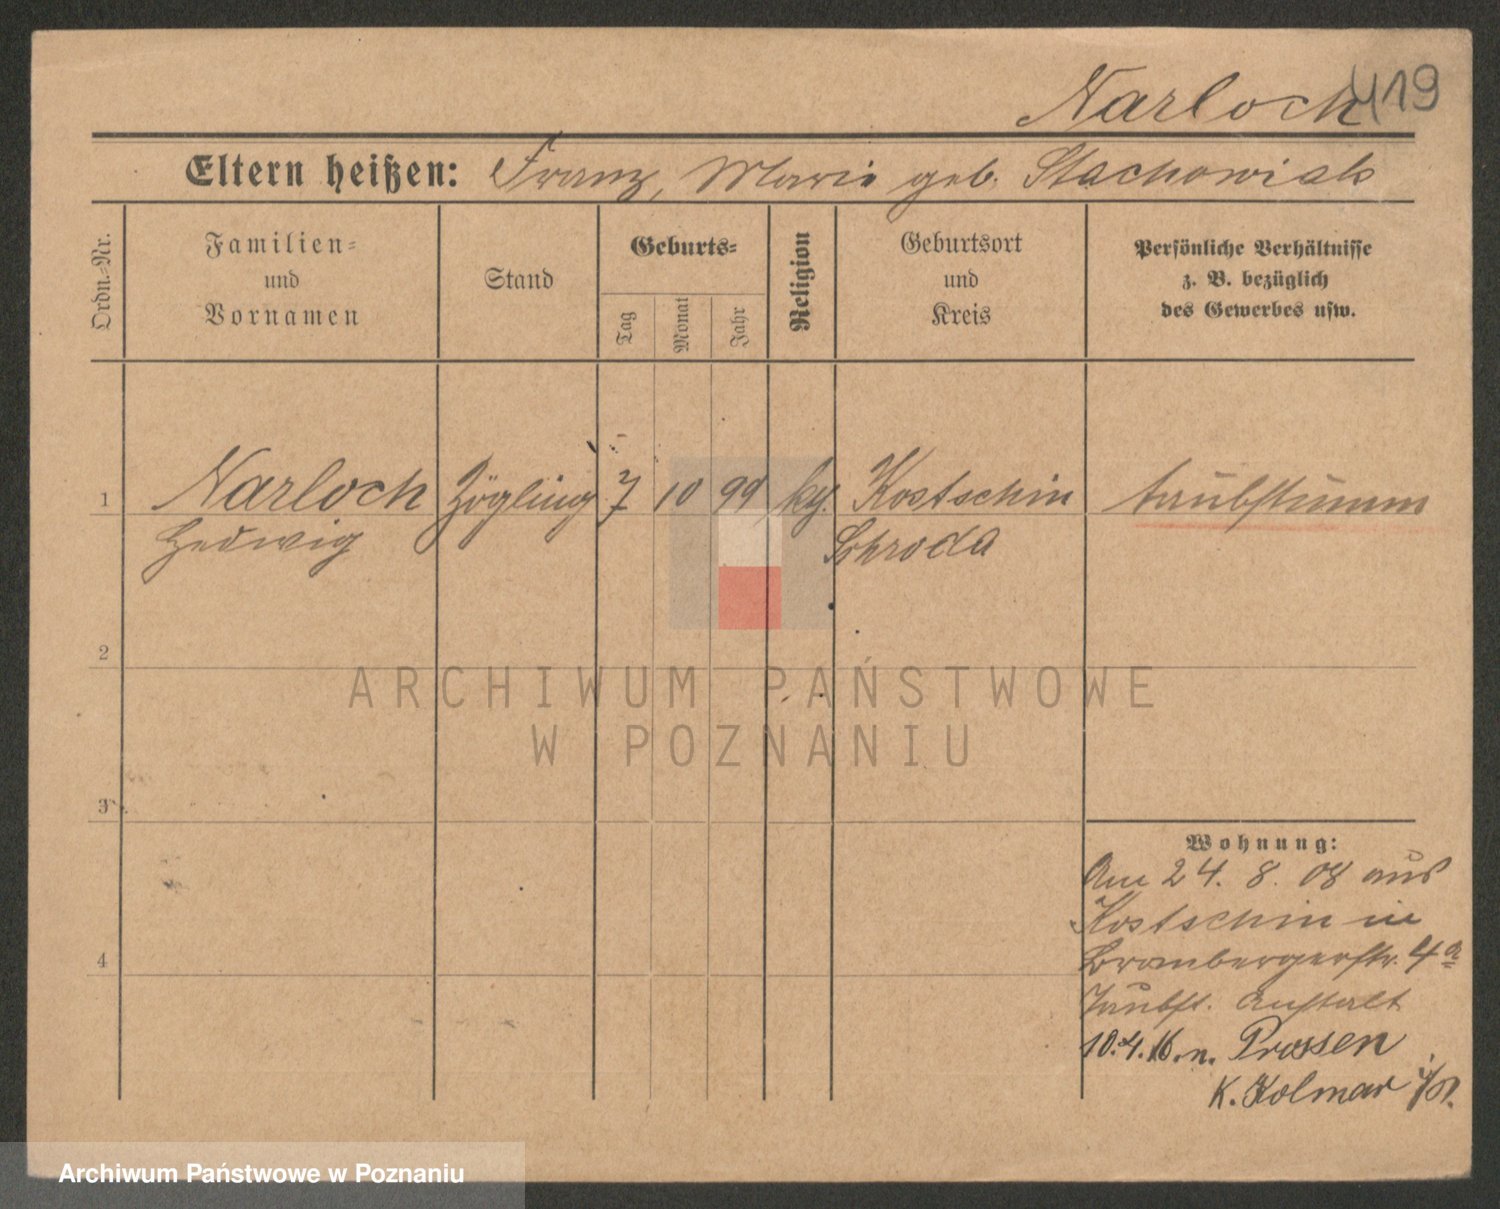 Narloch 419
Eltern heißen: Franz, Marie geb. Stachowiak
Ordn.-Nr.
Familien-
und
Vornamen
Stand
Geburts-
Tag
Monat
Jahr
Religion
Geburtsort
und
Kreis
Persönliche Verhältnisse
z. B. bezüglich
des Gewerbes usw.
1 Narloch Zögling 7 10 99 Kostschin taubstumm
Hedwig Schroda
2
ARCHIWUM PAŃSTWOWE
W POZNANIU
3
Wohnung:
Am 24. 8. 08 aus
Kostschin in
Brombergerstr. 4a
Taubst. Anstalt
4
10.4.16. n. Prossen
K. Kolmar i/P.
Archiwum Państwowe w Poznaniu